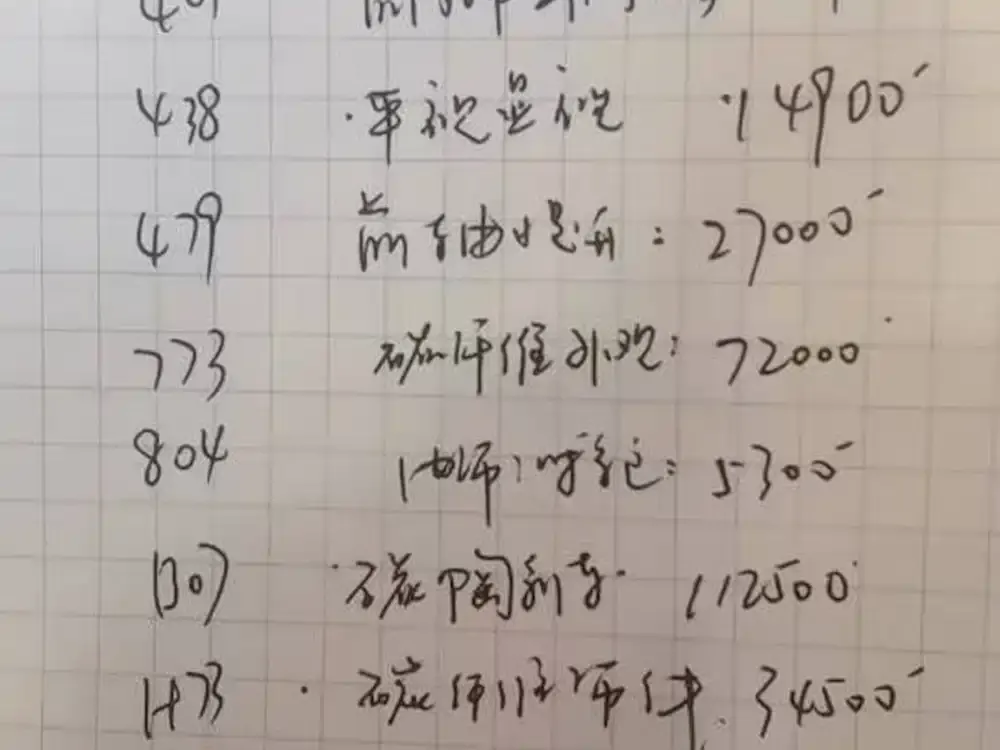 438 · 平视显示 · 14900
479 前轴提升 : 27000
773 碳纤维外观 : 72000
804 : 5300
1307 · 碳陶刹车 · 112500
1473 · 碳纤维饰件 . 34500